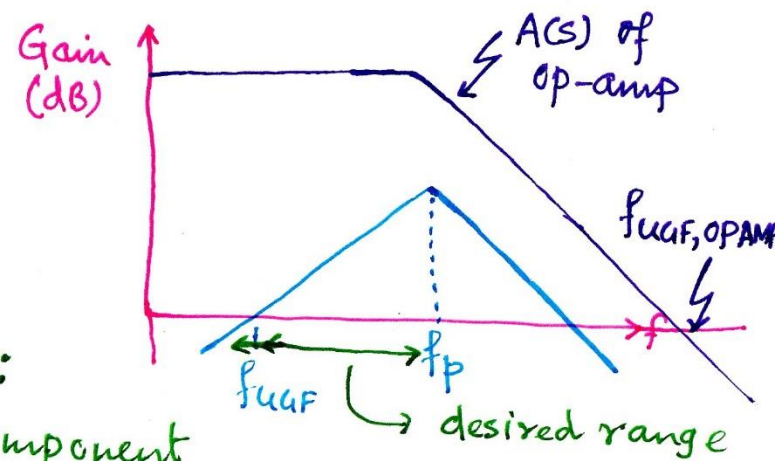 Gain
(dB)
A(s) of
op-amp
fUGF, OPAMP
f
fUGF
fp
desired range
:
mponent